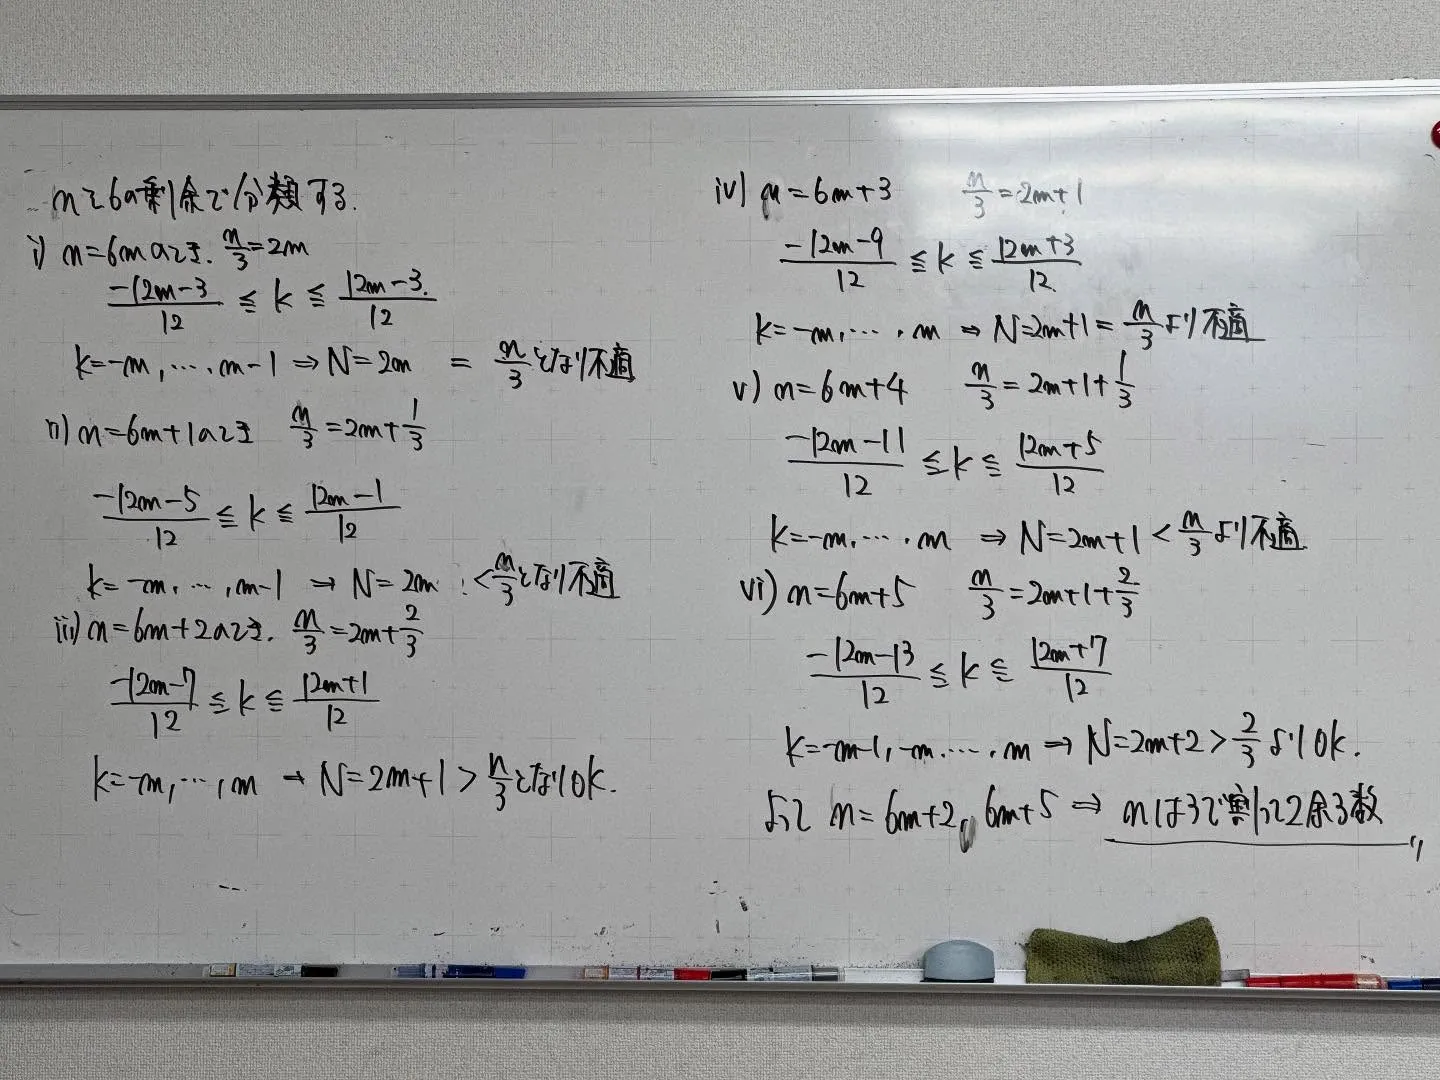 nを6の剰余で分類する.
i) n=6mのとき. n/3=2m
(-12m-3)/12 ≦ k ≦ (12m-3)/12
k=-m,…,m-1 ⇒ N=2m = n/3となり不適
ii) n=6m+1のとき n/3=2m+1/3
(-12m-5)/12 ≦ k ≦ (12m-1)/12
k=-m,…,m-1 ⇒ N=2m <n/3となり不適
iii) n=6m+2のとき. n/3=2m+2/3
(-12m-7)/12 ≦ k ≦ (12m+1)/12
k=-m,…,m → N=2m+1>n/3となりok.
iv) n=6m+3 n/3=2m+1
(-12m-9)/12 ≦ k ≦ (12m+3)/12
k=-m,…,m ⇒ N=2m+1=n/3より不適
v) n=6m+4 n/3=2m+1+1/3
(-12m-11)/12 ≦ k ≦ (12m+5)/12
k=-m,…,m ⇒ N=2m+1<n/3より不適
vi) n=6m+5 n/3=2m+1+2/3
(-12m-13)/12 ≦ k ≦ (12m+7)/12
k=-m-1,-m,…,m ⇒ N=2m+2>2/3よりok.
よって n=6m+2, 6m+5 ⇒ nは3で割って2余る数